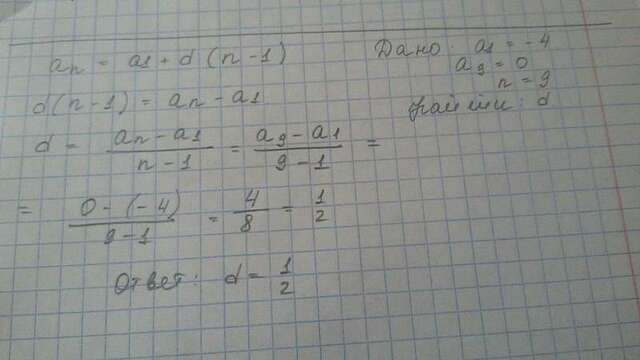 an = a1 + d (n - 1)
Дано: a1 = -4
a9 = 0
n = 9
Найти: d
d(n - 1) = an - a1
d = (an - a1)/(n - 1) = (a9 - a1)/(9 - 1) =
= (0 - (-4))/(9 - 1) = 4/8 = 1/2
Ответ: d = 1/2